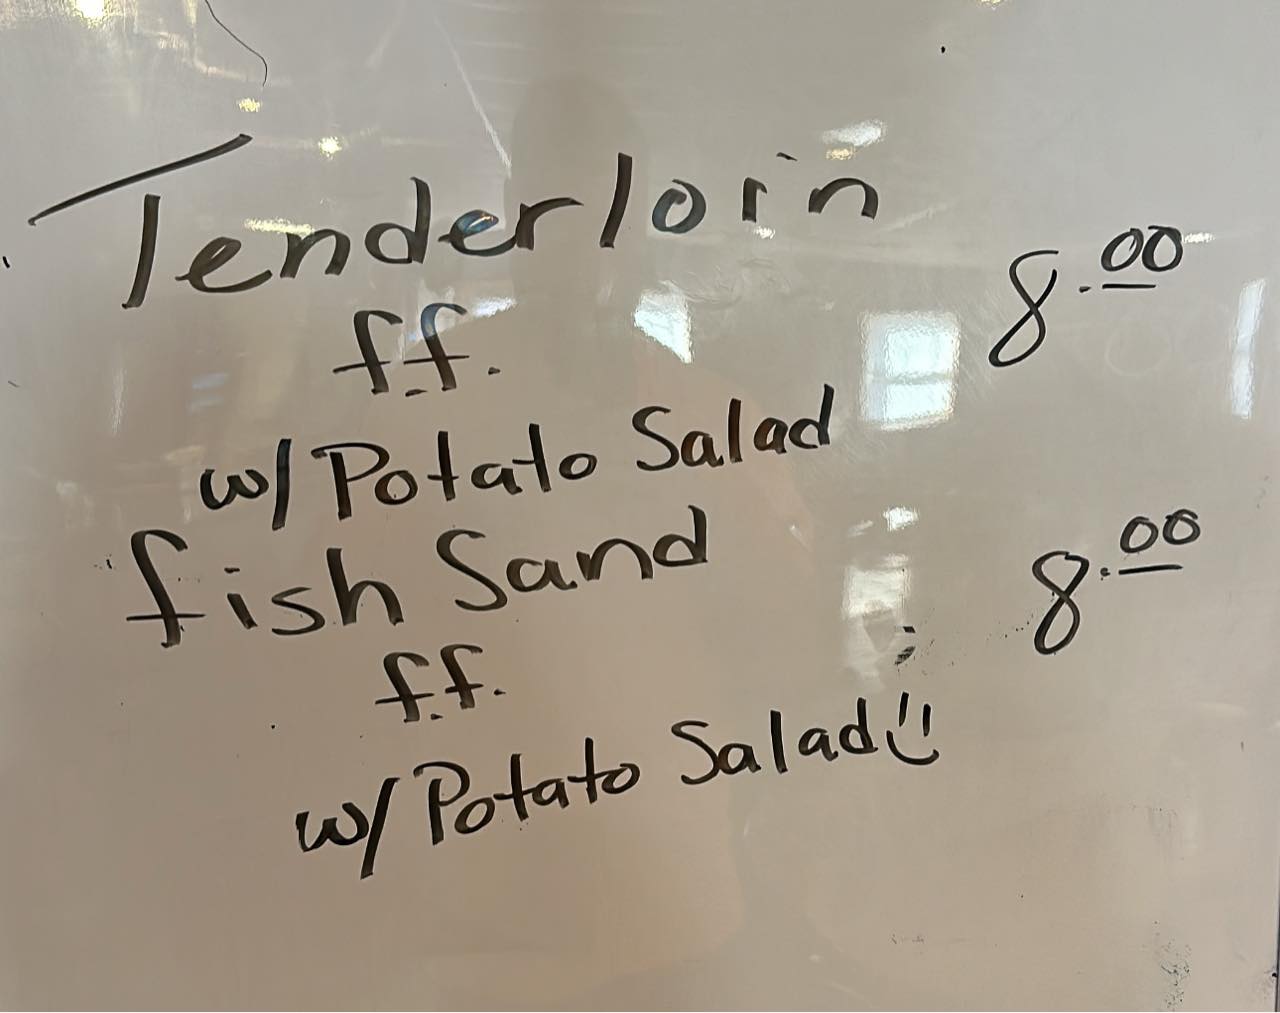 Tenderloin 8.00
f.f.
w/ Potato Salad
fish Sand 8.00
f.f.
w/ Potato Salad